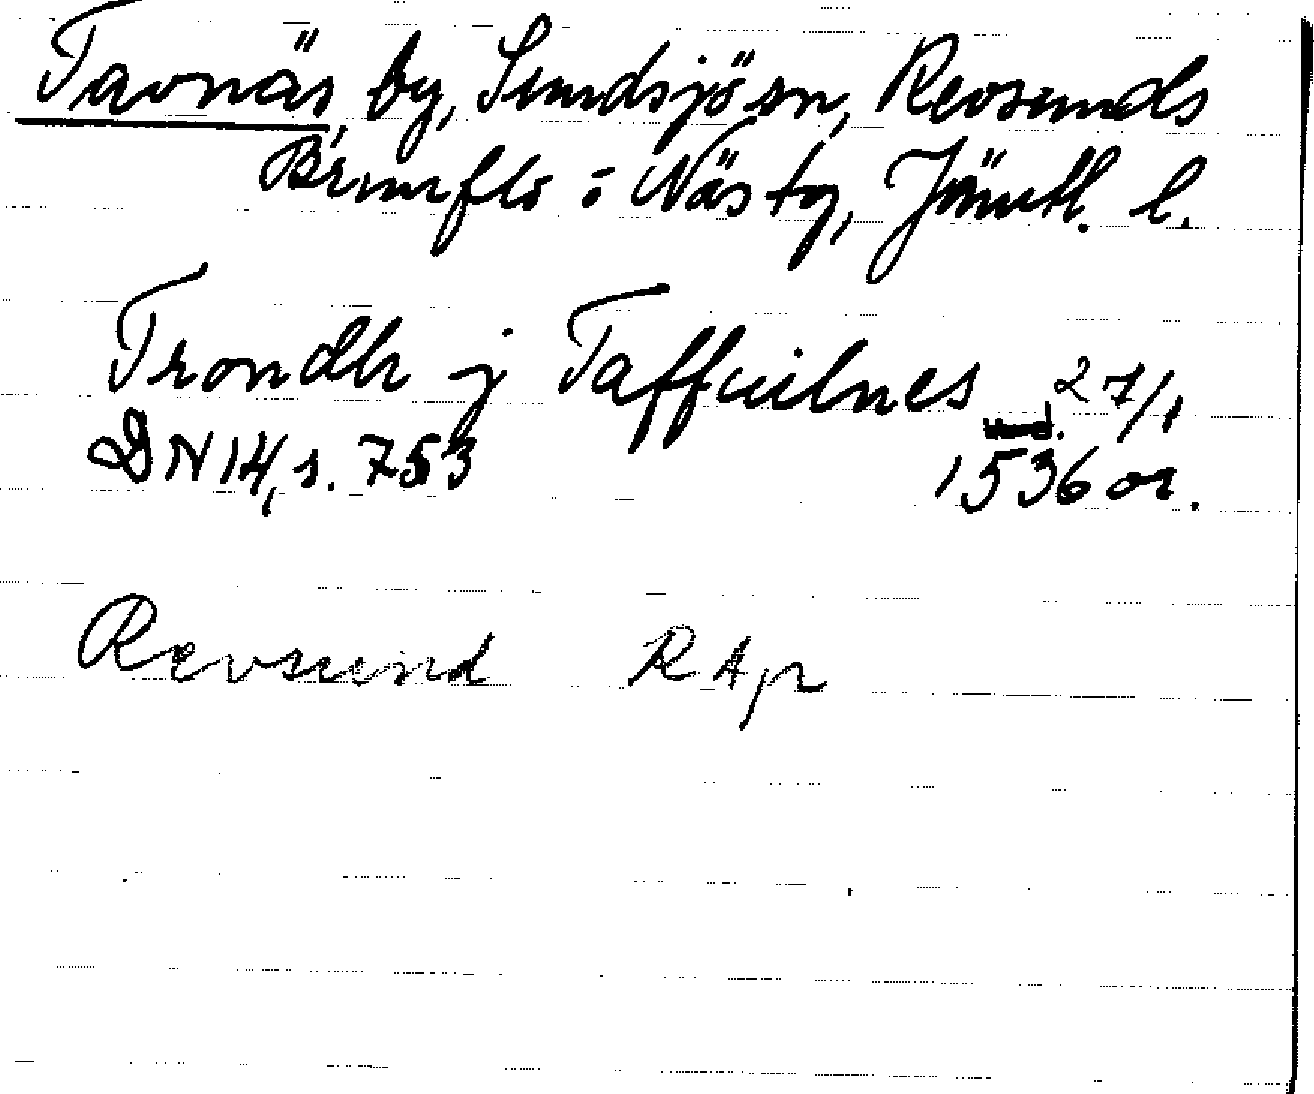 Tavnäs by, Sundsjö sn, Revsunds
Brunflo o Näs tg, Jämtl. l.
Trondh j Taffuilnes 27/1
DN 14, s. 753 1536 or.
Revsund RAp